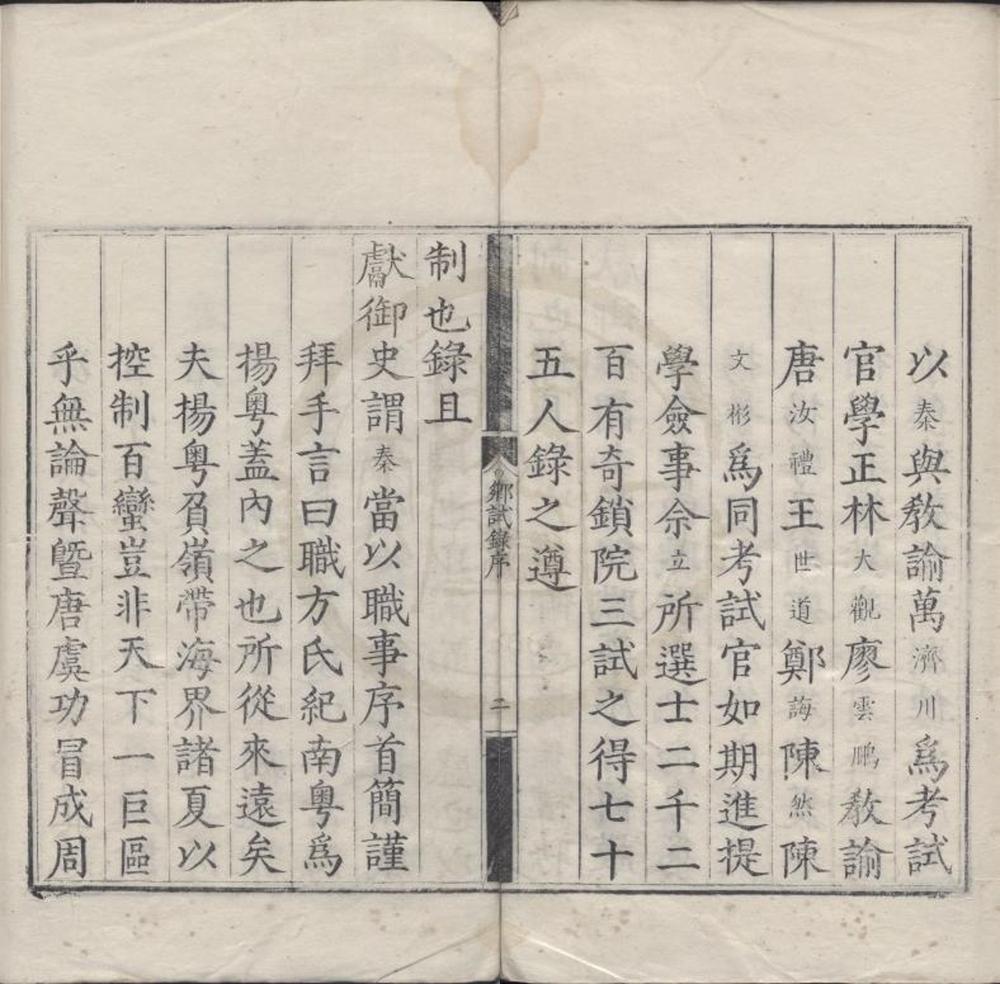 以秦與教諭萬濟川爲考試
官學正林大觀廖雲鵬教諭
唐汝禮王世道鄭誨陳然陳
文彬爲同考試官如期進提
學僉事佘立所選士二千二
百有奇鎖院三試之得七十
五人錄之遵
鄉試錄序
二
制也錄且
獻御史謂秦當以職事序首簡謹
拜手言曰職方氏紀南粤爲
揚粤蓋內之也所從來遠矣
夫揚粤負嶺帶海界諸夏以
控制百蠻豈非天下一巨區
乎無論聲曁唐虞功冒成周